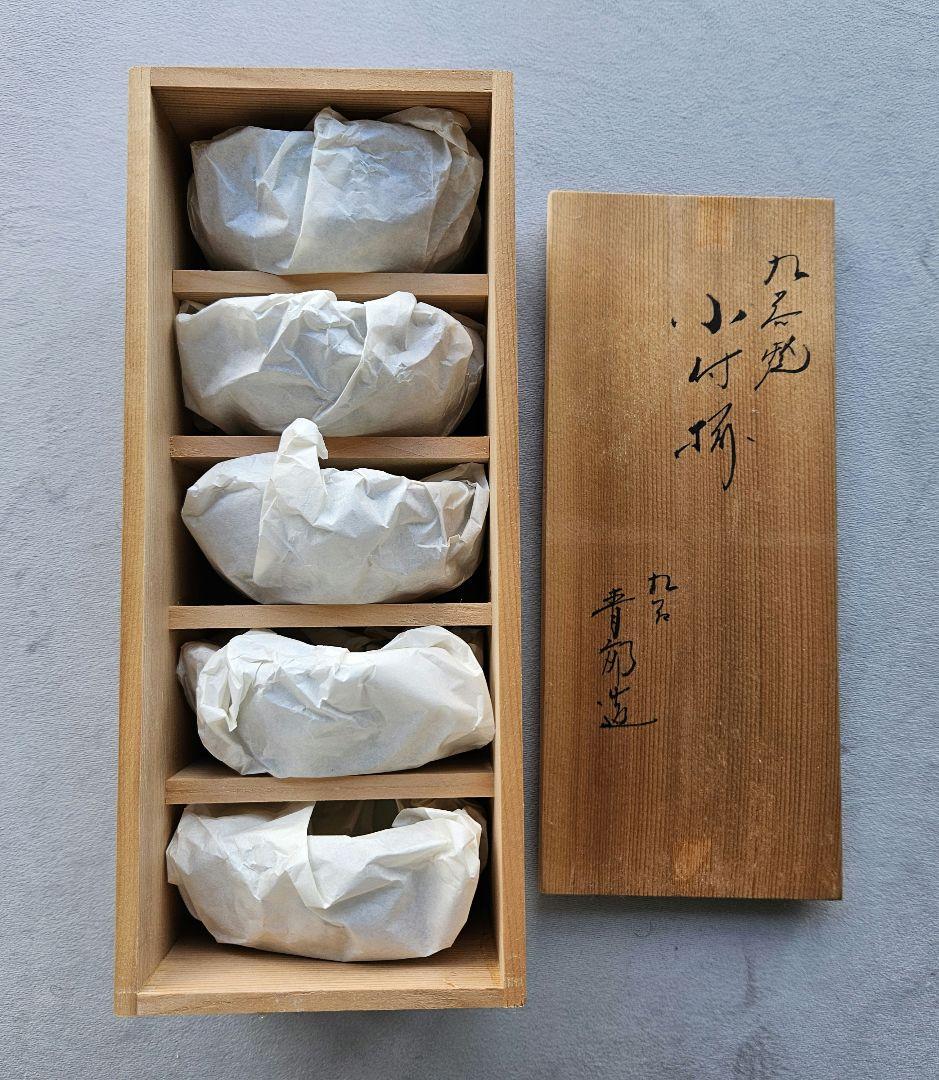 九谷焼
小付揃
九谷
青郊造